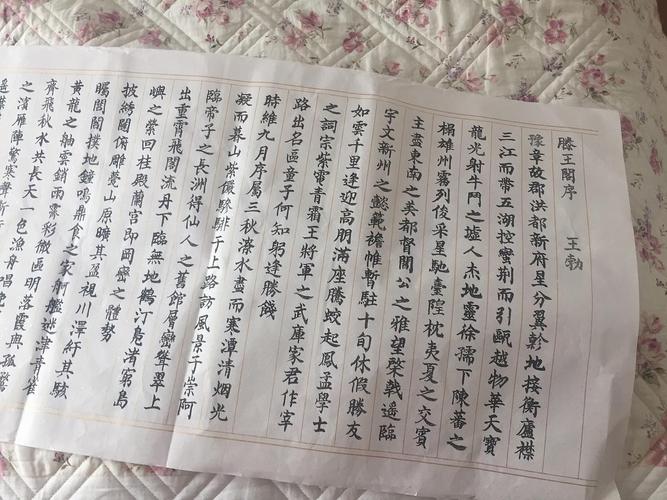 滕王閣序 王勃
豫章故郡洪都新府星分翼軫地接衡廬襟
三江而帶五湖控蠻荊而引甌越物華天寶
龍光射牛鬥之墟人杰地靈徐孺下陳蕃之
榻雄州霧列俊采星馳臺隍枕夷夏之交賓
主盡東南之美都督閻公之雅望棨戟遙臨
宇文新州之懿範襜帷暫駐十旬休假勝友
如雲千里逢迎高朋滿座騰蛟起鳳孟學士
之詞宗紫電青霜王將軍之武庫家君作宰
路出名區童子何知躬逢勝餞
時維九月序屬三秋潦水盡而寒潭清烟光
凝而暮山紫儼驂騑于上路訪風景于崇阿
臨帝子之長洲得仙人之舊館層巒聳翠上
出重霄飛閣流丹下臨無地鶴汀鳧渚窮島
嶼之縈回桂殿蘭宮即岡巒之體勢
披綉闥俯雕甍山原曠其盈視川澤紆其駭
矚閭閻撲地鐘鳴鼎食之家舸艦迷津青雀
黃龍之舳雲銷雨霽彩徹區明落霞與孤鶩
齊飛秋水共長天一色漁舟唱
之濱雁陣驚寒聲斷
遙襟